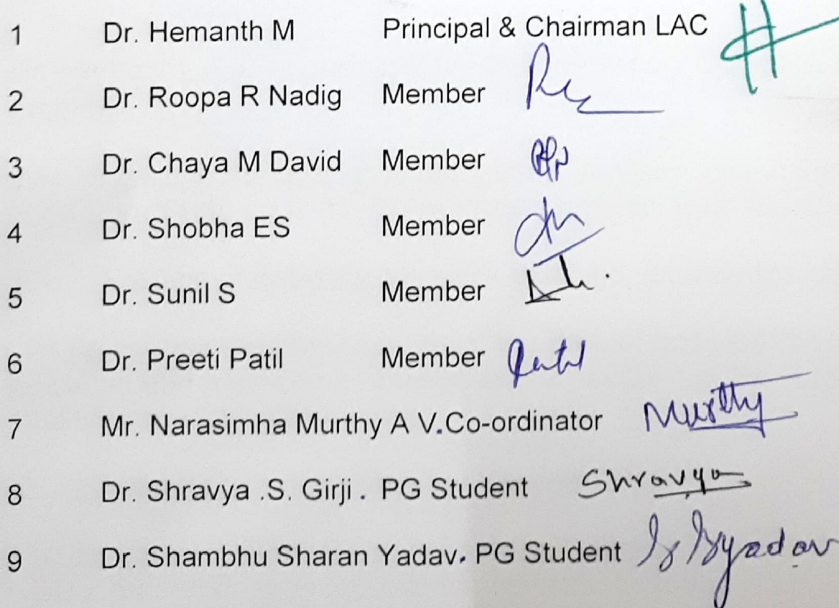 1 Dr. Hemanth M Principal & Chairman LAC
2 Dr. Roopa R Nadig Member
3 Dr. Chaya M David Member
4 Dr. Shobha ES Member
5 Dr. Sunil S Member
6 Dr. Preeti Patil Member Patil
7 Mr. Narasimha Murthy A V.Co-ordinator Murthy
8 Dr. Shravya .S. Girji . PG Student Shravya
9 Dr. Shambhu Sharan Yadav. PG Student